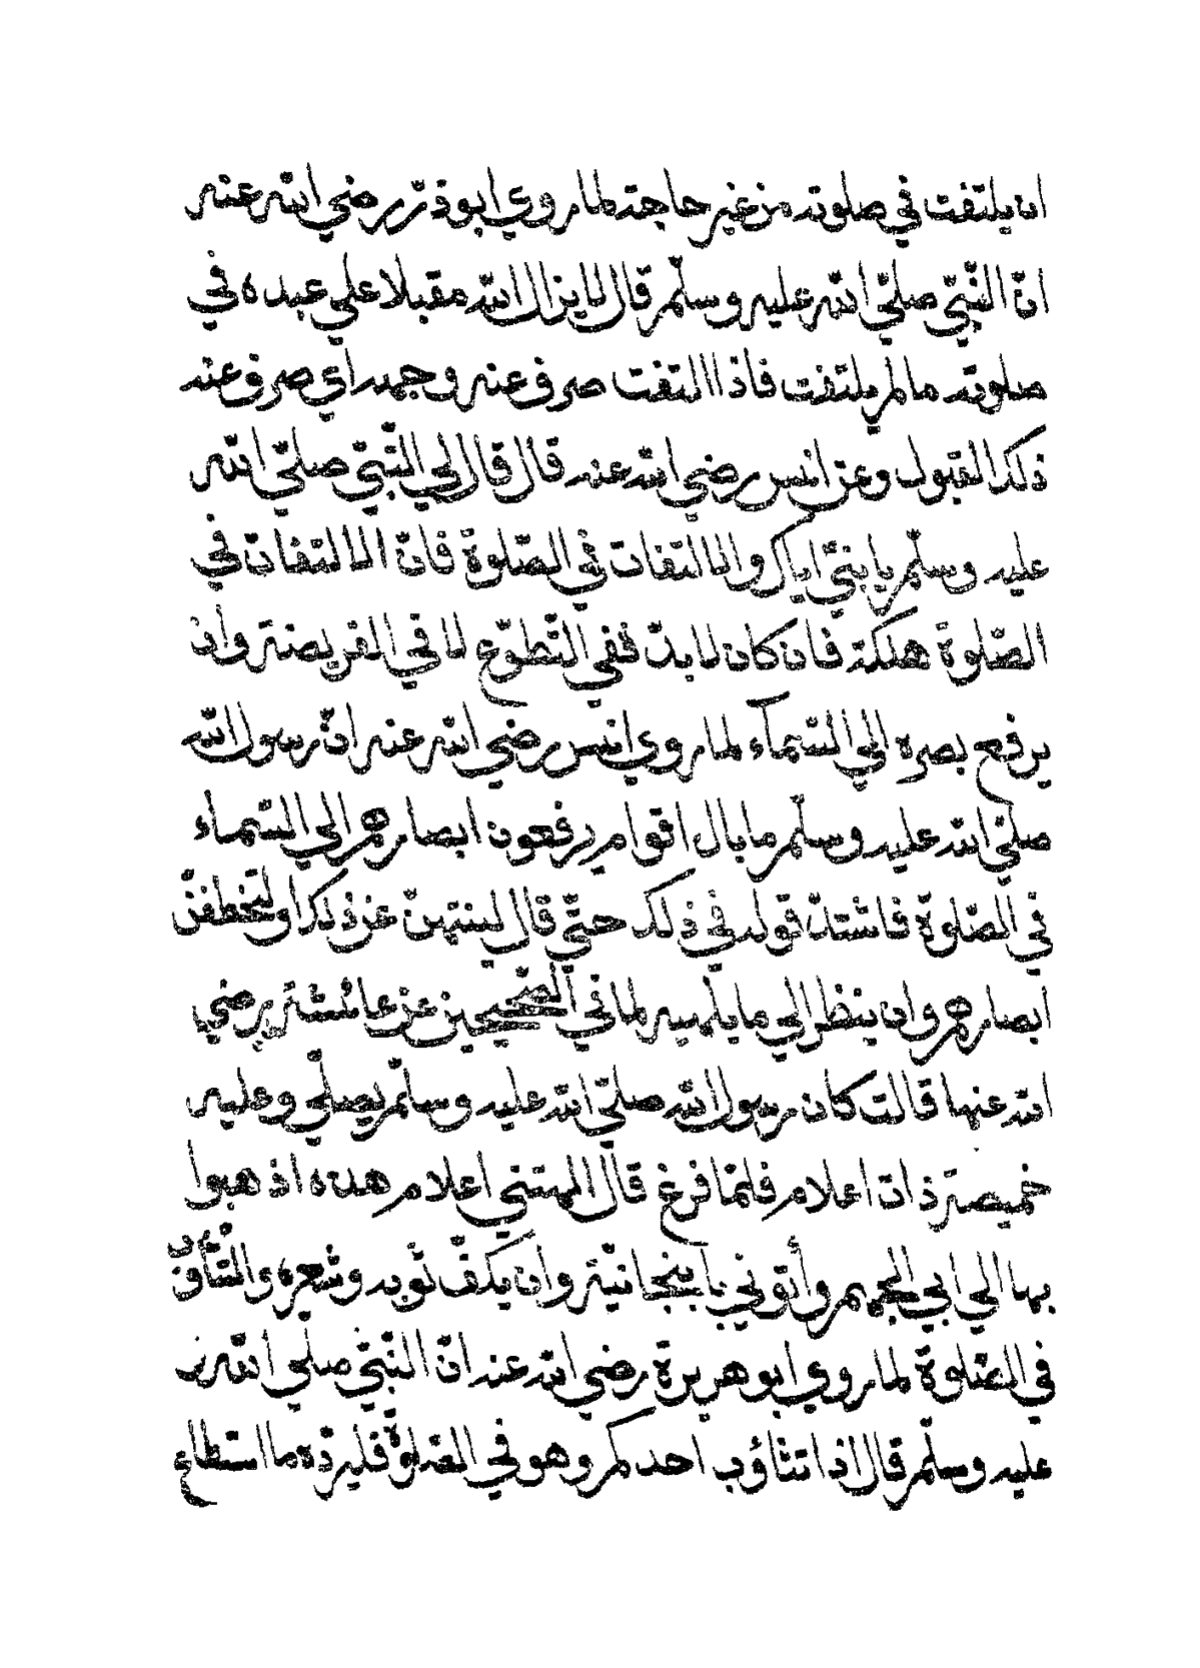 ان يلتفت في صلوته من غير حاجة لما روي ابوذرّ رضي الله عنه
انّ النّبيّ صلّي الله عليه وسلّم قال لا يزال الله مقبلا علي عبده في
صلوته ما لم يلتفت فاذا التفت صرف عنه وجهه اي صرف عنه
ذلك القبول وعن انس رضي الله عنه قال قال لي النّبيّ صلّي الله
عليه وسلّم يا بنيّ اياك والالتفات في الصّلوة فانّ الالتفات في
الصّلوة هلكة فان كان لا بدّ ففي التّطوّع لا في الفريضة وان
يرفع بصره الي السّمآء لما روي انس رضي الله عنه انّ رسول الله
صلّي الله عليه وسلّم ما بال اقوام يرفعون ابصارهم الي السّماء
في الصّلوة فاشتدّ قوله في ذلك حتّي قال لينتهنّ عن ذلك او لتخطفنّ
ابصارهم وان ينظر الي ما يلهيه لما في الصّحيحين عن عائشة رضي
الله عنها قالت كان رسول الله صلّي الله عليه وسلّم يصلّي وعليه
خميصة ذات اعلام فلمّا فرغ قال الهتني اعلام هذه اذهبوا
بها الي ابي الجهم وأتوني بابنجانيّة وان يكفّ ثوبه وشعره والتّثاؤب
في الصّلوة لما روي ابو هريرة رضي الله عنه انّ النّبيّ صلّي الله
عليه وسلّم قال اذا تثاؤب احدكم وهو في الصّلوة فليردّه ما استطاع